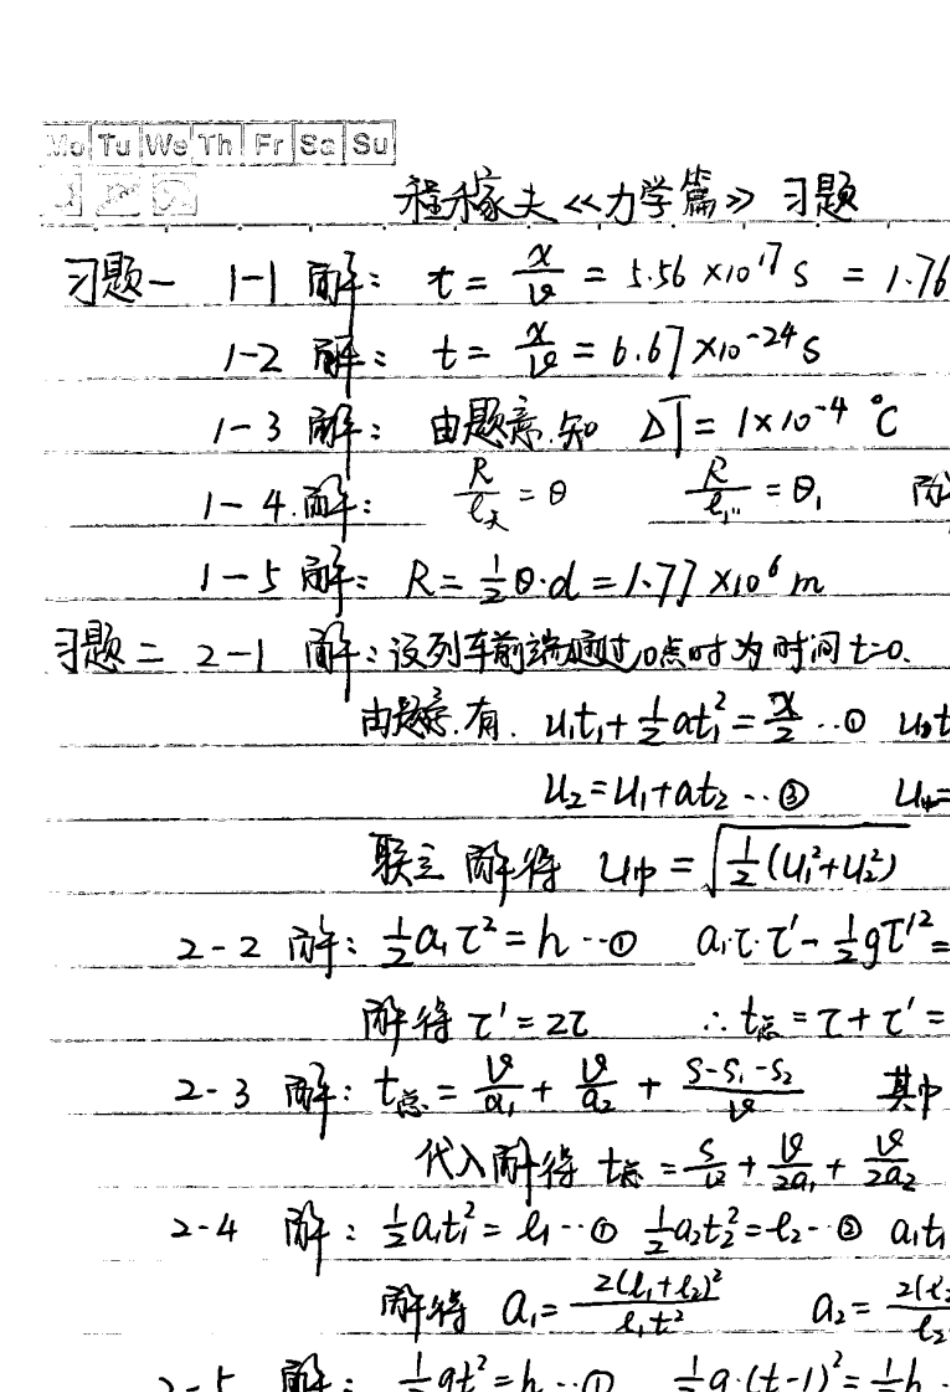 Mo Tu We Th Fr Sa Su
程稼夫《力学篇》习题
习题一 1-1 解: t = x/v = 5.56 ×10^17 s = 1.76
1-2 解: t = x/v = 6.67 ×10^-24 s
1-3 解: 由题意.知 ΔT = 1×10^-4 ℃
1-4.解: R/l天 = θ R/l1'' = θ1
1-5 解: R = 1/2 θ·d = 1.77 ×10^6 m
习题二 2-1 解:设列车前端通过O点时为时间t=0.
由题意.有. u1t1 + 1/2 at1^2 = x/2 …①
u2 = u1 + at2 …③ u中=
联立解得 u中 = √(1/2 (u1^2+u2^2))
2-2 解: 1/2 a1τ^2 = h …① a1τ·τ' - 1/2 gτ'^2 =
解得 τ' = 2τ ∴ t总 = τ + τ' =
2-3 解: t总 = v/a1 + v/a2 + (S-S1-S2)/v 其中
代入解得 t总 = S/v + v/2a1 + v/2a2
2-4 解: 1/2 a1t1^2 = l1 …① 1/2 a2t2^2 = l2 …② a1t1
解得 a1 = 2(l1+l2)^2/l1t^2 a2 =
2-5 解: 1/2 gt^2 = h …① 1/2 g·(t-1)^2 = 1/2 h